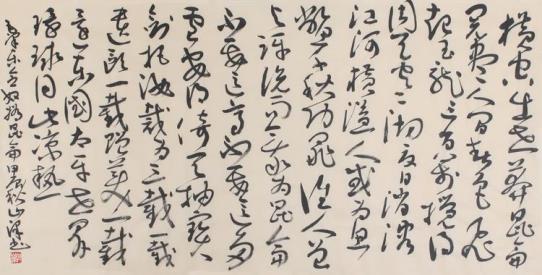 横空出世莽昆仑
阅尽人间春色飞
起玉龙三百万搅得
周天寒彻夏日消溶
江河横溢人或为鱼
鳖千秋功罪谁人曾
与评说而今我谓昆仑
不要这高不要这多
雪安得倚天抽宝
剑把汝裁为三截一截
遗欧一截赠美一截
还东国太平世界
环球同此凉热
念奴娇昆仑甲戌秋山书